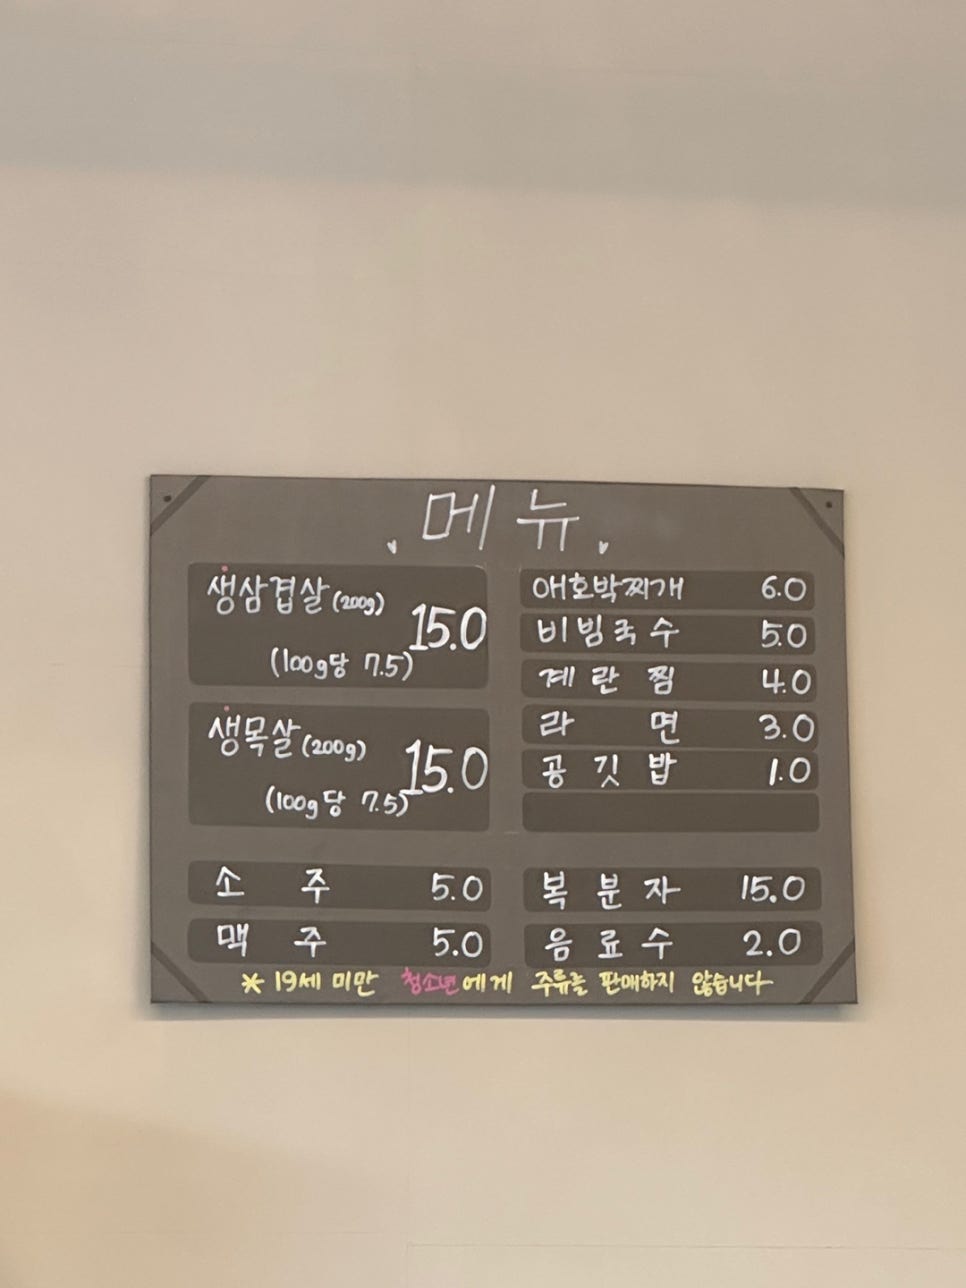 메뉴
생삼겹살(200g) 15.0
(100g당 7.5)
생목살(200g) 15.0
(100g당 7.5)
애호박찌개 6.0
비빔국수 5.0
계란찜 4.0
라면 3.0
공깃밥 1.0
소주 5.0
맥주 5.0
복분자 15.0
음료수 2.0
* 19세 미만 청소년에게 주류를 판매하지 않습니다